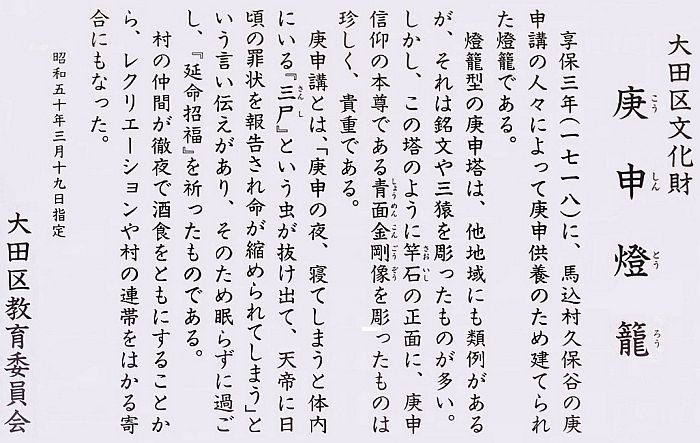 大田区文化財
庚申燈籠
こうしんとうろう
享保三年(一七一八)に、馬込村久保谷の庚
申講の人々によって庚申供養のため建てられ
た燈籠である。
燈籠型の庚申塔は、他地域にも類例がある
が、それは銘文や三猿を彫ったものが多い。
しかし、この塔のように竿石の正面に、庚申
さおいし
信仰の本尊である青面金剛像を彫ったものは
しょうめんこんごうぞう
珍しく、貴重である。
庚申講とは、「庚申の夜、寝てしまうと体内
にいる『三尸』という虫が抜け出て、天帝に日
さんし
頃の罪状を報告され命が縮められてしまう」と
いう言い伝えがあり、そのため眠らずに過ご
し、『延命招福』を祈ったものである。
村の仲間が徹夜で酒食をともにすることか
ら、レクリエーションや村の連帯をはかる寄
合にもなった。
昭和五十年三月十九日指定
大田区教育委員会